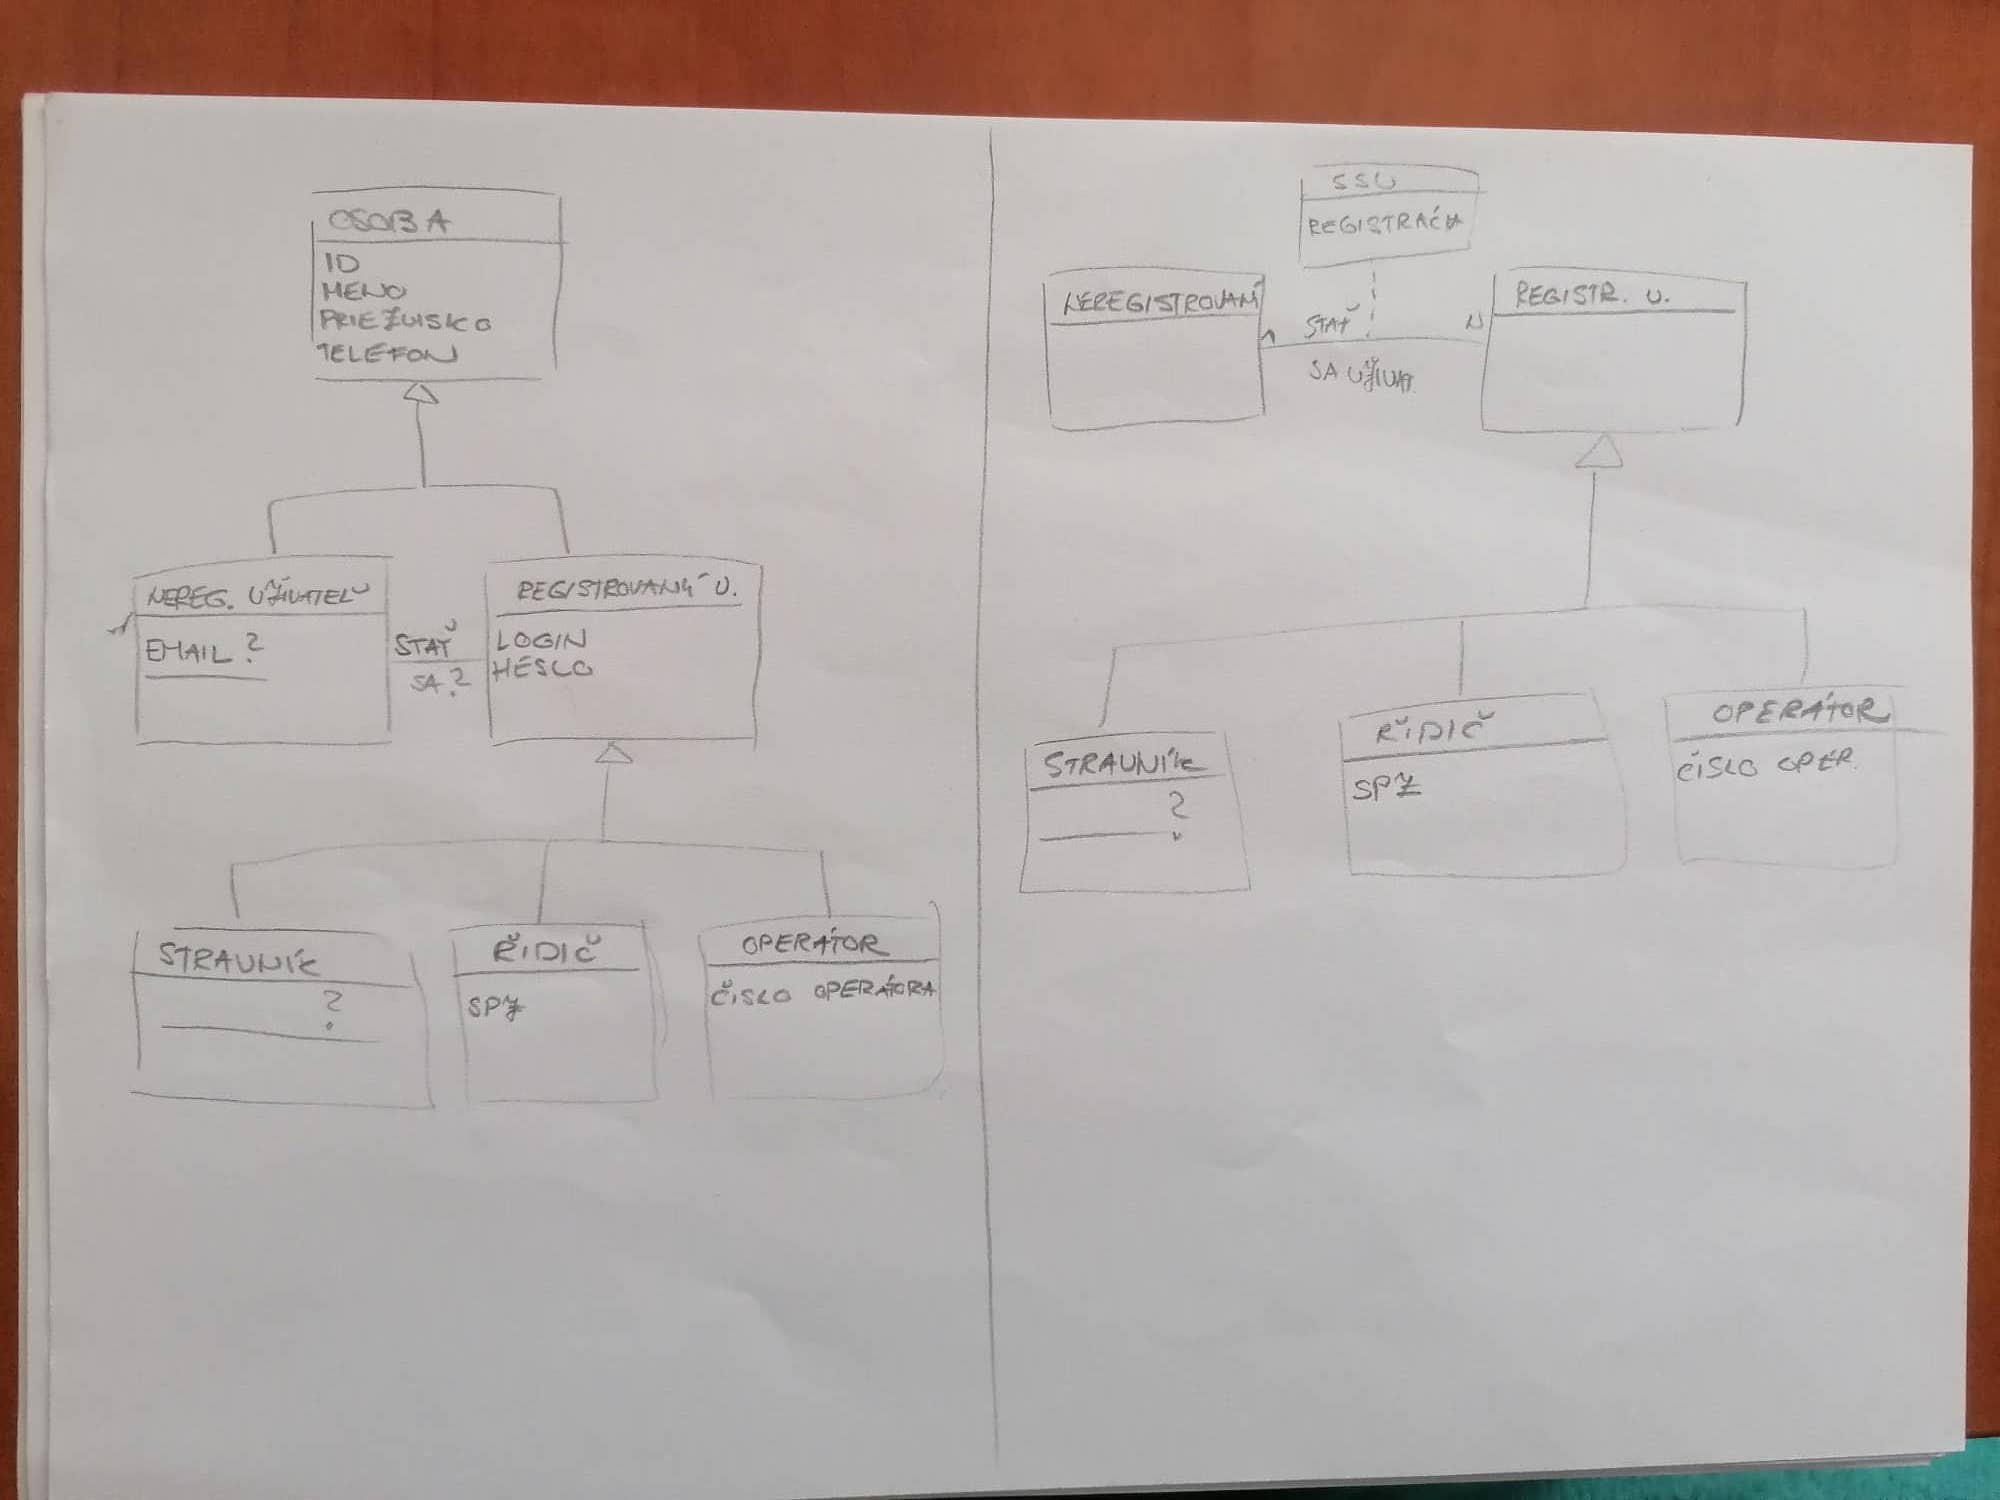 OSOBA
ID
MENO
PRIEZVISKO
TELEFON
NEREG. UŽIVATEL
EMAIL ?
STAŤ
SA ?
REGISTROVANÝ U.
LOGIN
HESLO
STRAVNÍK
?
ŘIDIČ
SPZ
OPERÁTOR
ČISLO OPERÁTORA
SSU
REGISTRAČIA
NEREGISTROVANÍ
STAŤ
N
SA UŽIVAT.
REGISTR. U.
STRAVNÍK
?
ŘIDIČ
SPZ
OPERÁTOR
ČISLO OPER.